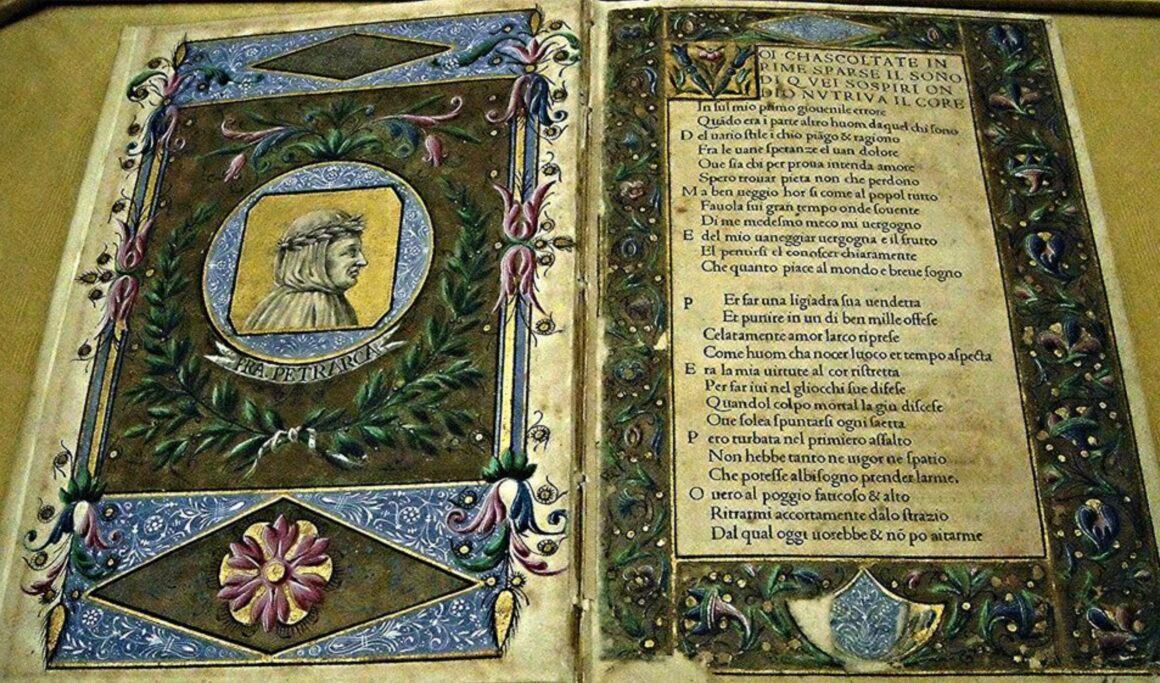 FRA. PETRARCA
VOI CHASCOLTATE IN
RIME SPARSE IL SONO
DI Q VEI SOSPIRI ON
DIO NVTRIVA IL CORE
In sul mio primo giouenile errore
Quãdo era i parte altro huom da quel chi sono
D el uario stile i chio piãgo & ragiono
Fra le uane speranze el uan dolore
Oue sia chi per proua intenda amore
Spero trouar pieta non che perdono
M a ben ueggio hor si come al popol tutto
Fauola fui gran tempo onde souente
Di me medesmo meco mi uergogno
E del mio uaneggiar uergogna e il frutto
El pentirsi el conoscer chiaramente
Che quanto piace al mondo e breue sogno
P Er far una ligiadra sua uendetta
Et punire in un di ben mille offese
Celatamente amor larco riprese
Come huom cha nocer luoco et tempo aspecta
E ra la mia uirtute al cor ristretta
Per far iui nel gliocchi sue difese
Quandol colpo mortal la giu discese
Oue solea spuntarsi ogni saetta
P ero turbata nel primiero assalto
Non hebbe tanto ne uigor ne spatio
Che potesse albisogno prender larme.
O uero al poggio faticoso & alto
Ritrarmi accortamente dalo strazio
Dal qual oggi uorebbe & nõ po aitarme